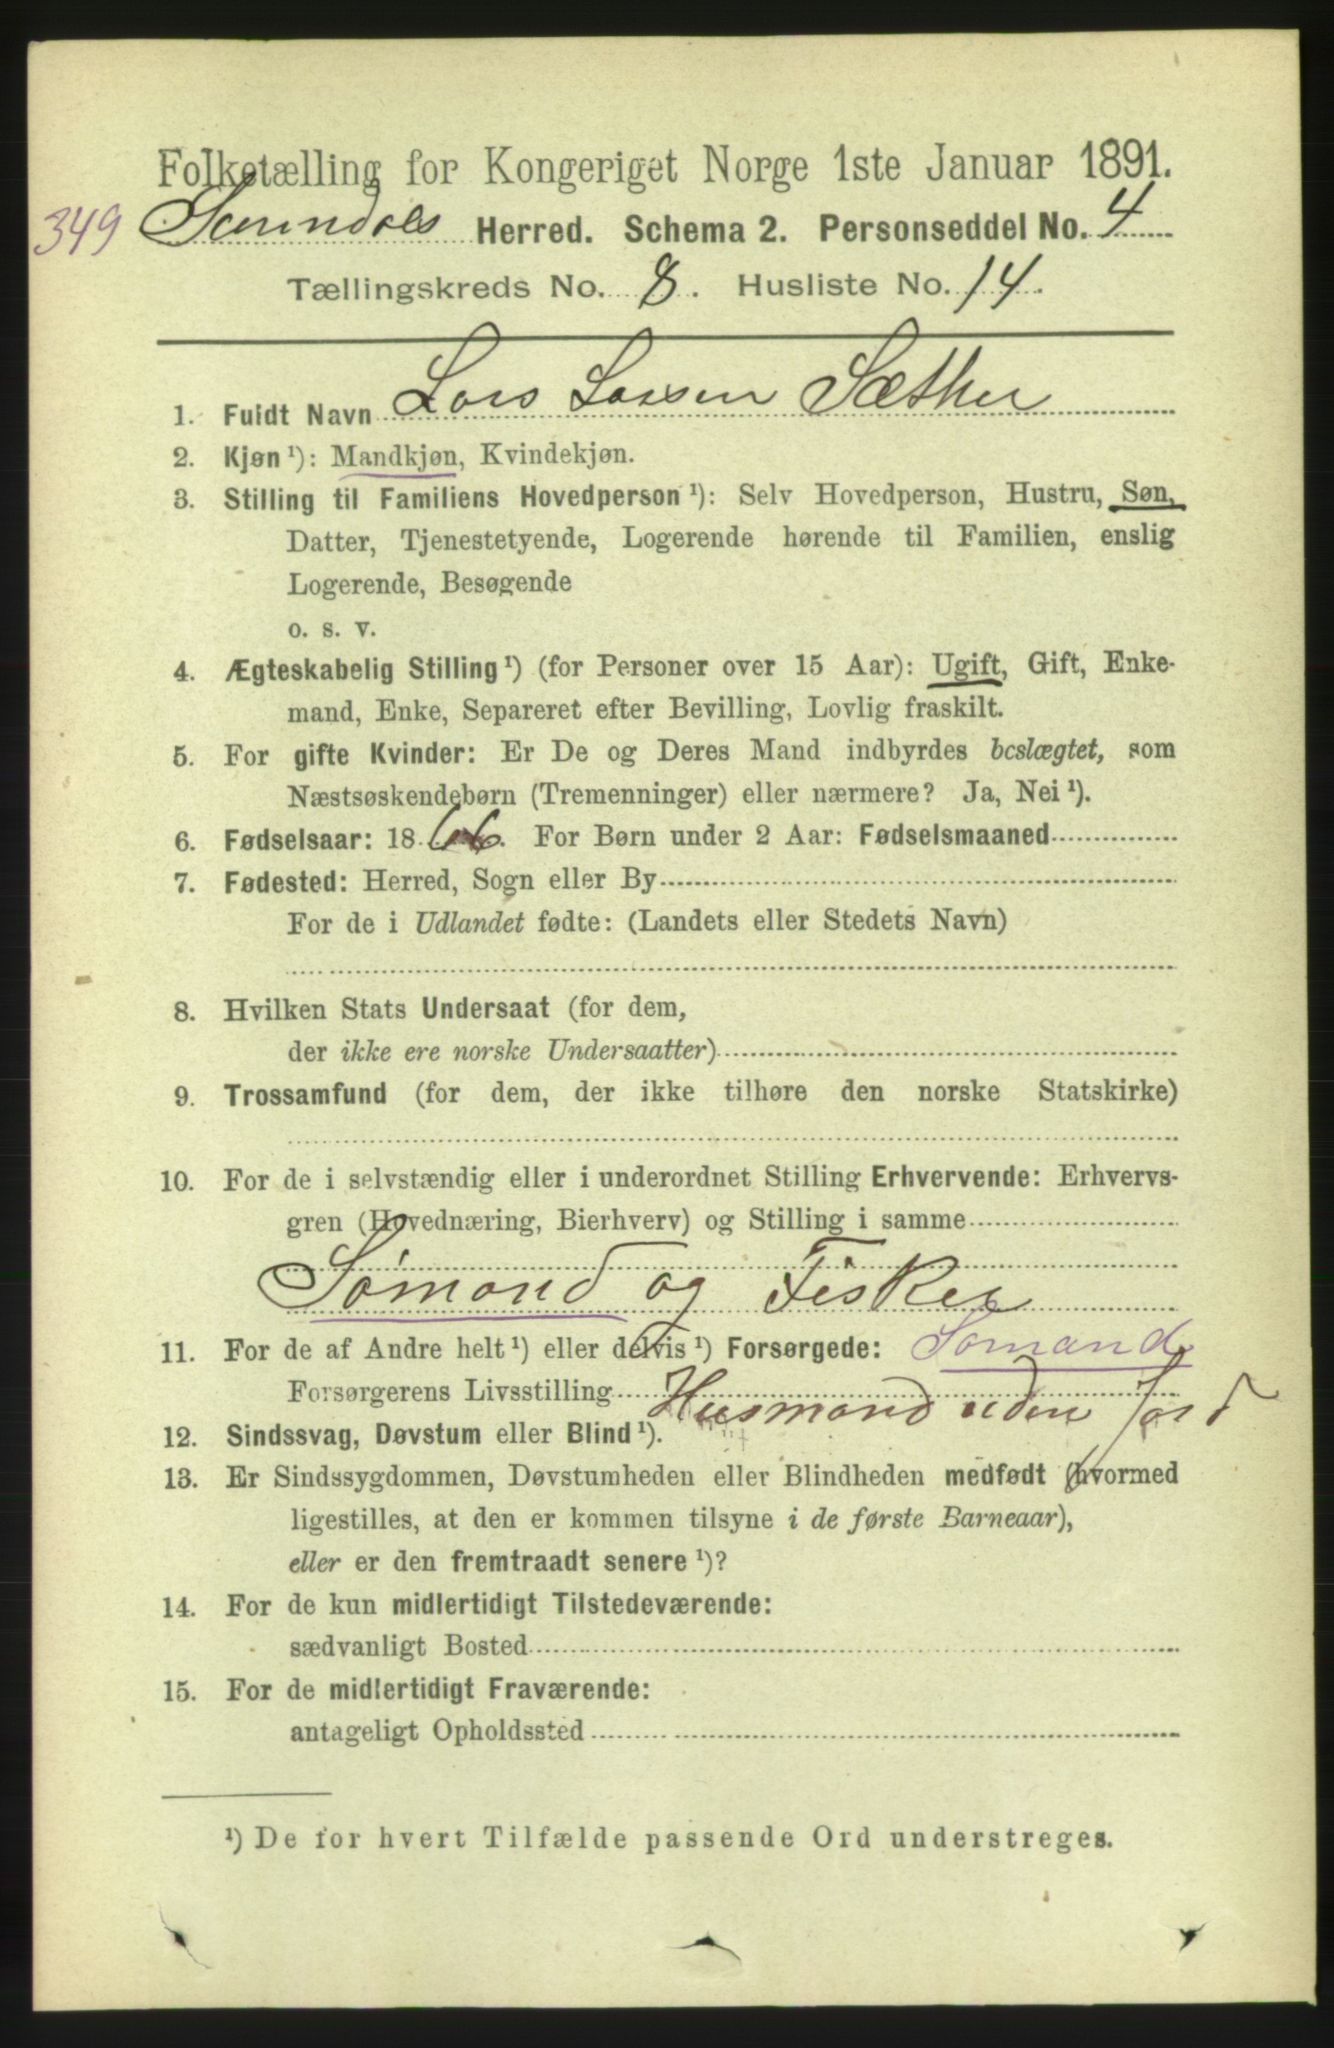 Folketælling for Kongeriget Norge 1ste Januar 1891.
349 Sunndals Herred. Schema 2. Personseddel No. 4
Tællingskreds No. 8. Husliste No. 14.
1. Fuldt Navn Lars Larsen Sæther
2. Kjøn ¹): Mandkjøn, Kvindekjøn.
3. Stilling til Familiens Hovedperson ¹): Selv Hovedperson, Hustru, Søn,
Datter, Tjenestetyende, Logerende hørende til Familien, enslig
Logerende, Besøgende
o. s. v.
4. Ægteskabelig Stilling ¹) (for Personer over 15 Aar): Ugift, Gift, Enke-
mand, Enke, Separeret efter Bevilling, Lovlig fraskilt.
5. For gifte Kvinder: Er De og Deres Mand indbyrdes beslægtet, som
Næstsøskendebørn (Tremenninger) eller nærmere? Ja, Nei ¹).
6. Fødselsaar: 1866. For Børn under 2 Aar: Fødselsmaaned
7. Fødested: Herred, Sogn eller By
For de i Udlandet fødte: (Landets eller Stedets Navn)
8. Hvilken Stats Undersaat (for dem,
der ikke ere norske Undersaatter)
9. Trossamfund (for dem, der ikke tilhøre den norske Statskirke)
10. For de i selvstændig eller i underordnet Stilling Erhvervende: Erhvervs-
gren (Hovednæring, Bierhverv) og Stilling i samme
Sømand og Fisker
11. For de af Andre helt ¹) eller delvis ¹) Forsørgede: Sømand
Forsørgerens Livsstilling Husmand uden Jord
12. Sindssvag, Døvstum eller Blind ¹).
13. Er Sindssygdommen, Døvstumheden eller Blindheden medfødt (hvormed
ligestilles, at den er kommen tilsyne i de første Barneaar),
eller er den fremtraadt senere ¹)?
14. For de kun midlertidigt Tilstedeværende:
sædvanligt Bosted
15. For de midlertidigt Fraværende:
antageligt Opholdssted
¹) De for hvert Tilfælde passende Ord understreges.